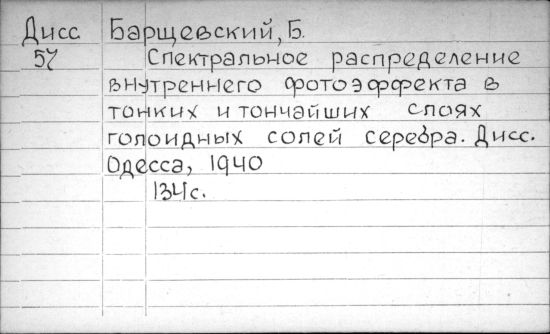 Дисс Барщевский, Б.
57 Спектральное распределение
внутреннего фотоэффекта в
тонких и тончайших слоях
голоидных солей серебра. Дисс.
Одесса, 1940
134с.